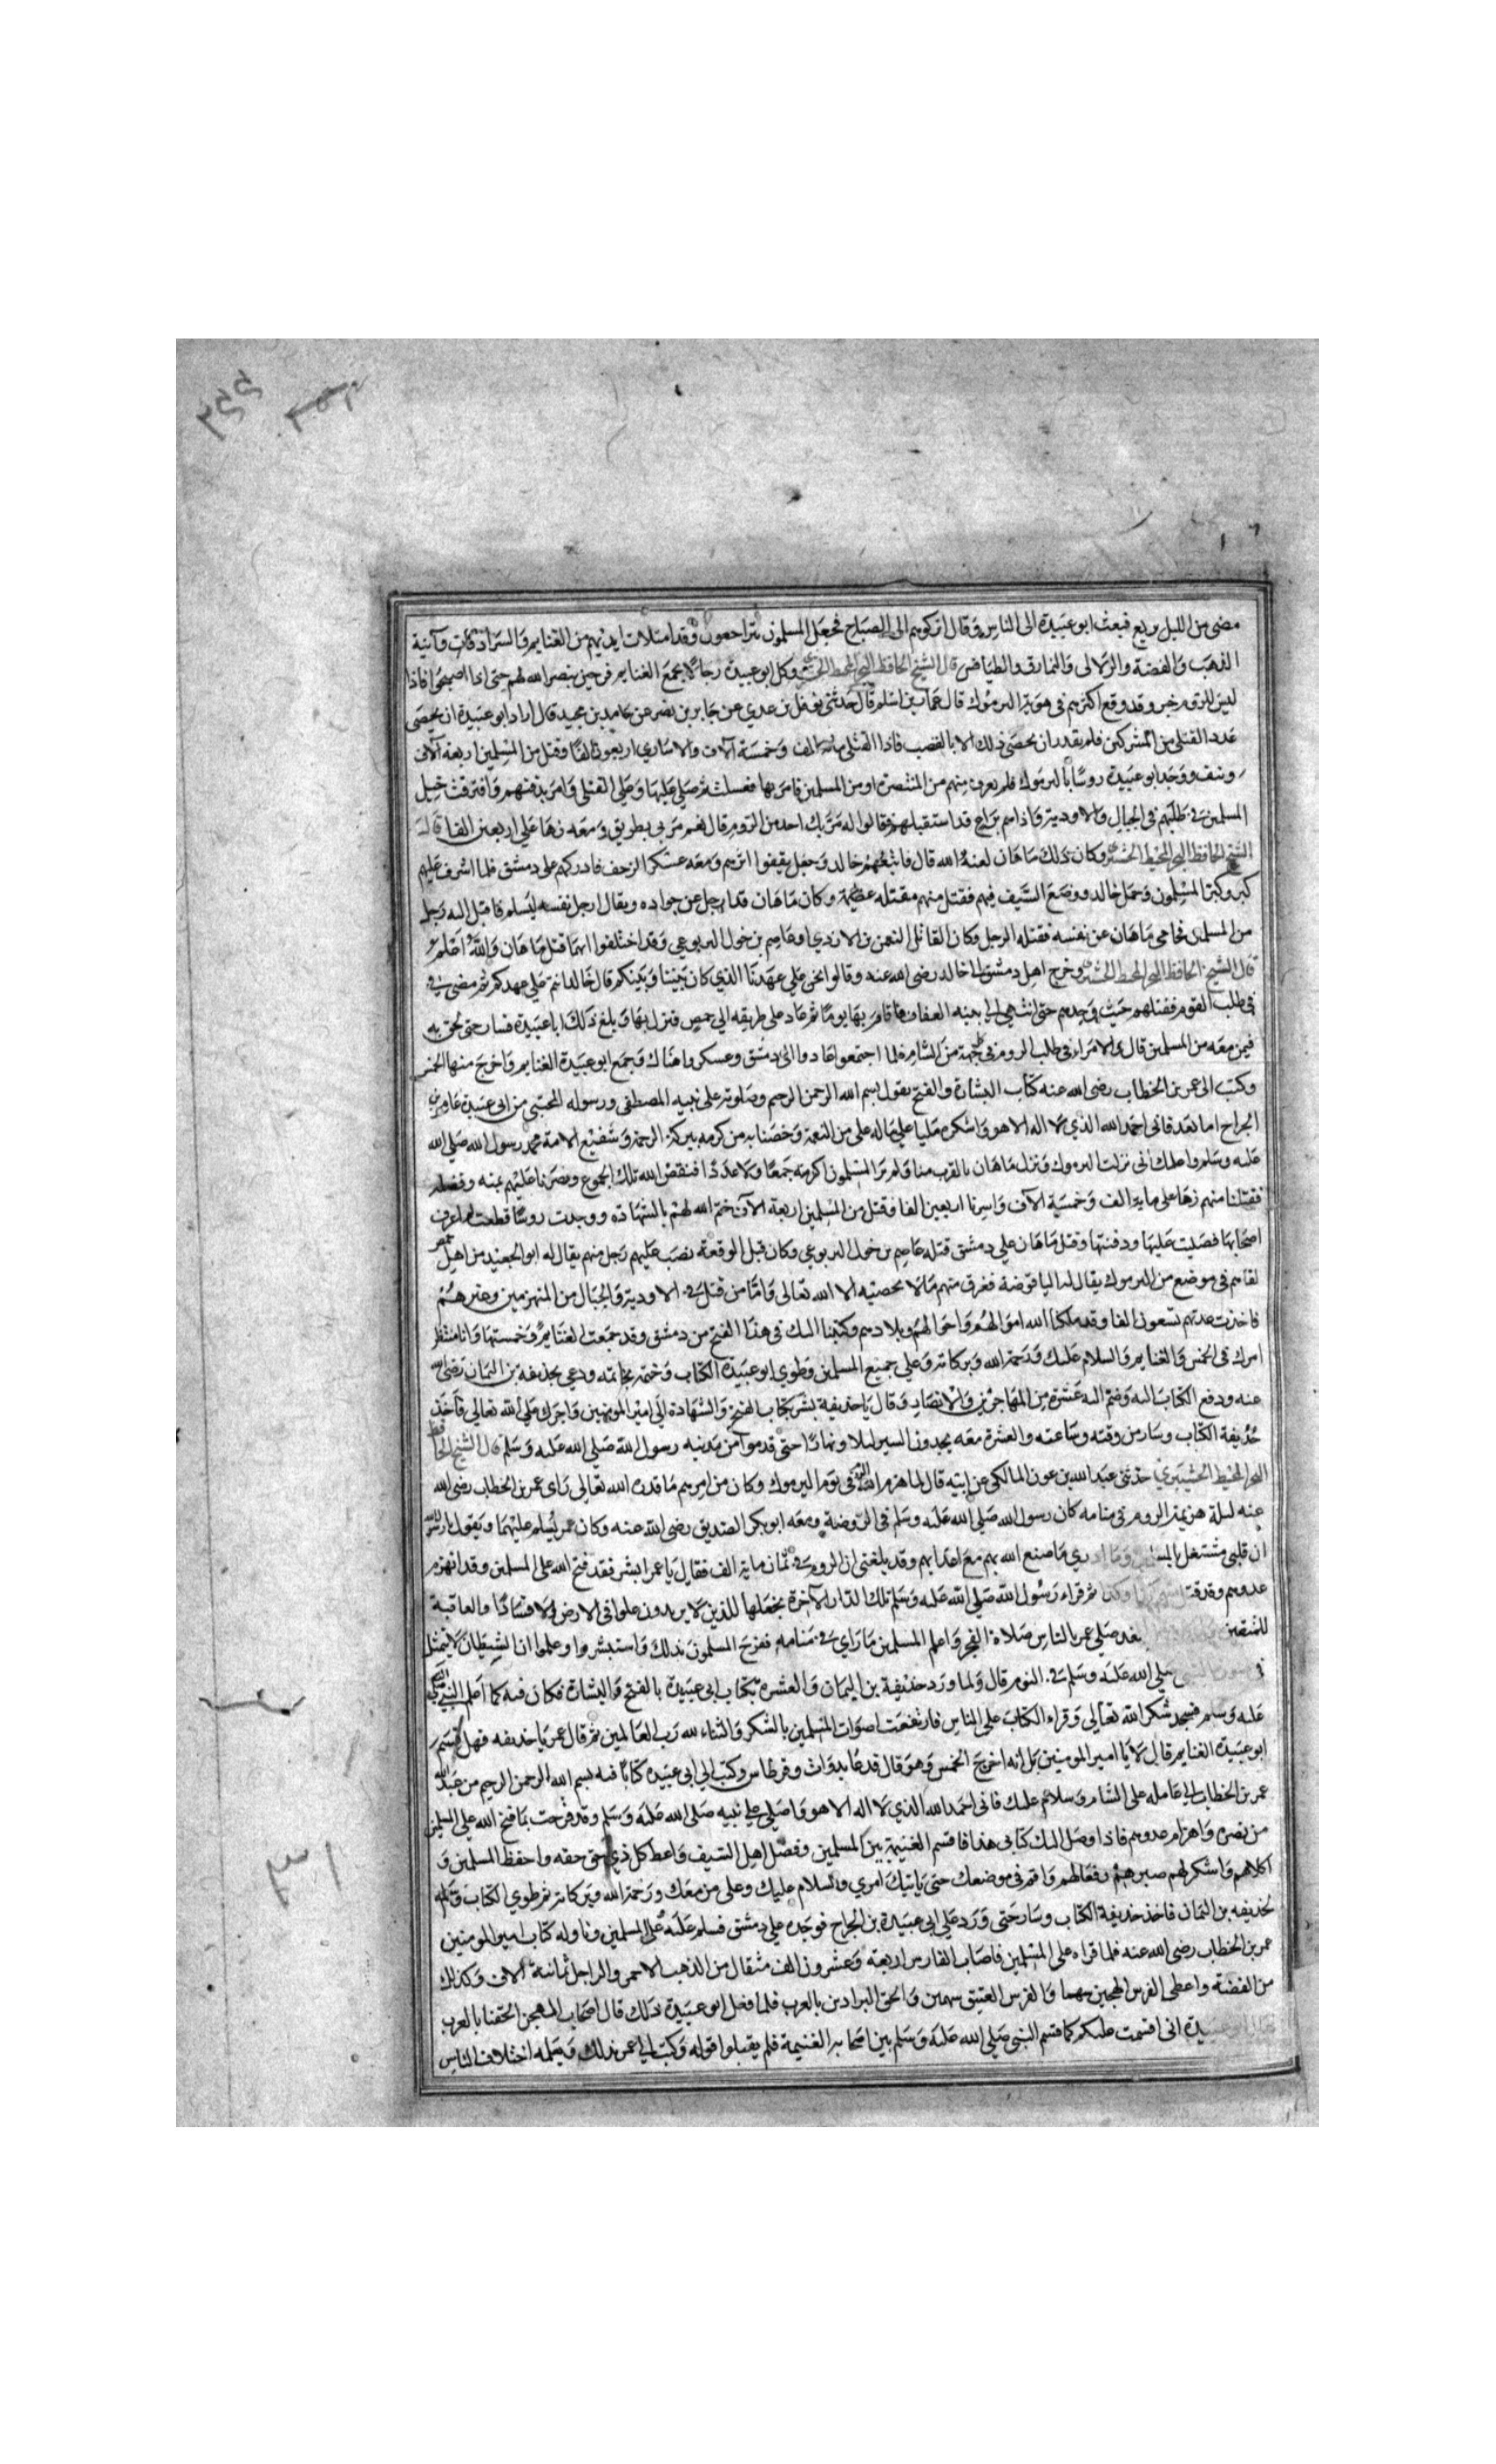 مضى من الليل بريع فبعث ابو عبيدة الى الناس وقال اتركوهم الى الصباح فجعل المسلمون يتراجعون وقد امتلات ايديهم من الغنايم والسرادقات وآنية
الذهب والفضة والزلالى والنمارق والطنافس قال الشيخ الحافظ البحر المحيط ووكل ابو عبيدة رجالا بجمع الغنايم فرحين بنصر الله لهم حتى اذا اصبحوا فاذا
ليس للروم خبر وقد وقع اكثرهم فى هوة اليرموك قال عمار بن اسلم قال حدثنى نوفل بن عدي عن جابر بن نصر عن حامد بن مجيد قال اراد ابو عبيدة ان يحصى
عدد القتلى من المشركين فلم يقدر ان يحصى ذلك الا بالقصب فاذا القتلى مائة الف وخمسة آلاف والاسارى اربعون الفا وقتل من المسلمين اربعة آلاف
ونيف ووجد ابو عبيدة روسا باليرموك فلم يعرف منهم من المتنصرة او من المسلمين فامر بها فغسلت ثم صلى عليها وعلى القتلى وامر بدفنهم وافترقت خيل
المسلمين فى طلبهم فى الجبال والاودية فاذا هم براع قد استقبلهم فقالوا له مر بك احد من الروم قال نعم مر بى بطريق ومعه زها على اربعين الفا قال
الشيخ الحافظ البحر المحيط وكان ذلك ماهان لعنه الله قال فاتبعهم خالد وجعل يقفوا اثرهم ومعه عسكر الزحف فادركهم على دمشق فلما اشرف عليهم
كبر وكبر المسلمون وحمل خالد ووضع السيف فيهم فقتل منهم مقتلة عظيمة وكان ماهان قد ترجل عن جواده ويقال ارجل نفسه ليسلم فاقبل اليه رجل
من المسلمين فحامى ماهان عن نفسه فقتله الرجل وكان القاتل النعمن الازدي او عاصم بن خول اليربوعي وقد اختلفوا ايهما قتل ماهان والله اعلم
قال الشيخ الحافظ البحر المحيط وخرج اهل دمشق الى خالد رضى الله عنه وقالوا نحن على عهدنا الذي كان بيننا وبينكم قال خالد انتم على عهدكم ثم مضى
فى طلب القوم فقتلهم حيث وجدهم حتى انتهى الى ثنية العقاب فاقام بها يوما ثم عاد على طريقه الى حمص فنزل بها وبلغ ذلك ابا عبيدة فسار حتى لحق به
فيمن معه من المسلمين قال والامراء فى طلب الروم فى جهة من الشام فلما اجتمعوا عادوا الى دمشق وعسكروا هناك وجمع ابو عبيدة الغنايم واخرج منها الخمس
وكتب الى عمر بن الخطاب رضى الله عنه كتاب البشارة والفتح يقول بسم الله الرحمن الرحيم وصلوته على نبيه المصطفى ورسوله المجتبى من ابى عبيدة عامر بن
الجراح اما بعد فانى احمد الله الذي لا اله الا هو واشكره مليا على ماله على من النعمة وخصنا به من كرمه ببركة نبى الرحمة وشفيع الامة محمد رسول الله صلى الله
عليه وسلم واعلمك انى نزلت اليرموك ونزل ماهان بالقرب منا ولم ير المسلمون اكثر منه جمعا ولا عددا فنقض الله تلك الجموع ونصرنا عليهم بمنه وفضله
فقتلنا منهم زها على ماية الف وخمسة الآف واسرنا اربعين الفا وقتل من المسلمين اربعة الآف ختم الله لهم بالشهادة ووجدت روسا قطعت لم اعرف
اصحابها فصليت عليها ودفنتها وقتل ماهان على دمشق قتله عاصم بن خول اليربوعي وكان قبل الوقعة نصب عليهم رجل منهم يقال له ابو الجعيد من اهل حمص
لقاهم فى موضع من اليرموك يقال لها الياقوضة فغرق منهم ما لا يحصيه الا الله تعالى واما من قتل فى الاودية والجبال من المنهزمين وغيرهم
فاخذت عدتهم تسعون الفا وقد ملكنا الله اموالهم وبلادهم وكتبنا اليك فى هذا الفتح من دمشق وقد جمعت الغنايم وخمستها وانا منتظر
امرك فى الخمس والغنايم والسلام عليك ورحمة الله وبركاته وعلى جميع المسلمين وطوي ابو عبيدة الكتاب وختمه بخاتمه ودعى بحذيفة بن اليمان رضى الله
عنه ودفع الكتاب اليه وضم اليه عشرة من المهاجرين والانصار وقال يا حذيفة بشر بكتاب الفتح والشهادة الى امير المومنين واجرك على الله تعالى فاخذ
حذيفة الكتاب وسار من وقته وساعته والعشرة معه يجدون السير ليلا ونهارا حتى قدموا من مدينة رسول الله صلى الله عليه وسلم قال الشيخ الحافظ
البحر المحيط حدثنى عبد الله بن عون المالكى عن ابيه قال لما هزم الله الروم فى يوم اليرموك وكان من امرهم ما قدره الله تعالى راى عمر بن الخطاب رضى الله
عنه ليلة هزيمة الروم فى منامه كان رسول الله صلى الله عليه وسلم فى الروضة ومعه ابو بكر الصديق رضى الله عنه وكان عمر يسلم عليهما ويقول يا رسول الله
ان قلبى مشتغل بالمسلمين وما ادري ما صنع الله بهم مع اعدايهم وقد بلغنى ان الروم فى ثمان ماية الف فقال يا عمر ابشر فقد فتح الله على المسلمين وقد انهزم
عدوهم وقد قتل منهم كذا وكذا ثم قراء رسول الله صلى الله عليه وسلم تلك الدار الآخرة نجعلها للذين لا يريدون علوا فى الارض ولا فسادا والعاقبة
للمتقين بعد صلى عمر بالناس صلاة الفجر واعلم المسلمين ما راي فى منامه ففرح المسلمون بذلك واستبشروا وعلموا ان الشيطان لا يتمثل
صلى الله عليه وسلم فى النوم قال ولما ورد حذيفة بن اليمان والعشرة بكتاب ابى عبيدة بالفتح والبشارة فكان فيه كما اعلم النبى صلى الله
عليه وسلم فسجد شكر الله تعالى وقراء الكتاب على الناس فارتفعت اصوات المسلمين بالشكر والثناء لله رب العالمين ثم قال عمر يا حذيفه فهل قسم
ابو عبيدة الغنايم قال لا يا امير المومنين بل انه اخرج الخمس وهو قال قدعا بدوات وقرطاس وكتب الى ابى عبيده كتابا فيه بسم الله الرحمن الرحيم من عبد الله
عمر بن الخطاب الى عامله على الشام وسلام عليك فانى احمد الله الذي لا اله الا هو واصلى على نبيه صلى الله عليه وسلم وقد فرحت بما فتح الله على المسلمين
من نصره واهزام عدوهم فاذا وصل اليك كتابى هذا فاقسم الغنيمة بين المسلمين وفضل اهل السيف واعط كل ذي حق حقه واحفظ المسلمين و
اكلاهم واشكر لهم صبرهم وفعالهم واقم فى موضعك حتى ياتيك امري والسلام عليك وعلى من معك ورحمة الله وبركاته ثم طوي الكتاب وسلمه
لحذيفه بن اليمان فاخذ حذيفة الكتاب وسار حتى ورد على ابى عبيدة بن الجراح فوجده على دمشق فسلم عليه وعلى المسلمين وناوله كتاب امير المومنين
عمر بن الخطاب رضى الله عنه فلما قراه على المسلمين فاصاب الفارس اربعة وعشرون الف مثقال من الذهب الاحمر والراجل ثمانية الاف وكذلك
من الفضة واعطى الفرس الهجين سهما والفرس العتيق سهمين والحق البرادين بالعرب فلما فعل ابو عبيدة ذلك قال اصحاب الهجين الحقنا بالعرب
فقال ابو عبيدة انى اقسمت عليكم كما قسم النبى صلى الله عليه وسلم بين اصحابه الغنيمة فلم يقبلوا قوله وكتب الى عمر بذلك ويعلمه اختلاف الناس